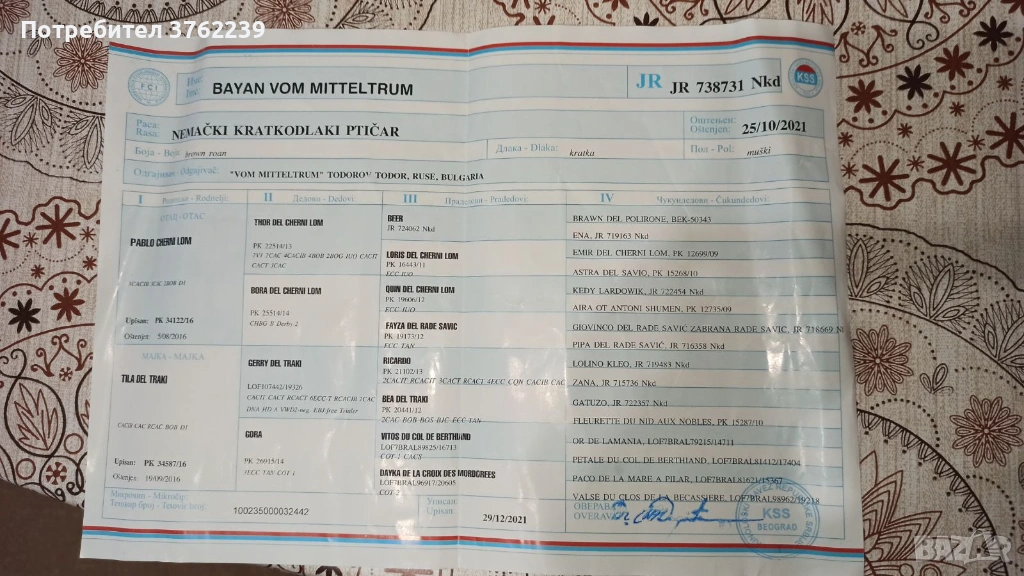 Потребител 3762239
FCI
Име:
Ime:
BAYAN VOM MITTELTRUM
JR
JR 738731 Nkd
KSS
Раса:
Rasa:
NEMAČKI KRATKODLAKI PTIČAR
Оштењен:
Oštenjen:
25/10/2021
Боја - Boja
brown roan
Длака - Dlaka:
kratka
Пол - Pol:
muški
Одгајивач - Odgajivač:
"VOM MITTELTRUM" TODOROV TODOR, RUSE, BULGARIA
I
Родитељи - Roditelji:
II
Дедови - Dedovi:
III
Прадедови - Pradedovi:
IV
Чукундедови - Čakundedovi:
ОТАЦ - OTAC
PABLO CHERNI LOM
Upisan: PK 34122/16
Oštenjen: 5/08/2016
МАЈКА - MAJKA
TILA DEL TRAKI
CACIB CAC RCAC BOB D1
Upisan: PK 34587/16
Oštenjen: 19/09/2016
THOR DEL CHERNI LOM
PK 22514/13
CACT 3CAC
BORA DEL CHERNI LOM
PK 25514/14
CHBG B Derby 2
GERRY DEL TRAKI
LOF107442/19326
CACIT CACT RCACT 6ECC-T RCACIB 2CAC
DNA HD A VWD2-neg. EBJ-free Trialer
GORA
PK 26915/14
3ECC TAN COT 1
BEER
JR 724062 Nkd
LORIS DEL CHERNI LOM
PK 16443/11
ECC JUO
QUIN DEL CHERNI LOM
PK 19606/12
ECC JUO
FAYZA DEL RADE SAVIC
PK 19173/12
ECC TAN
RICARDO
PK 21102/13
2CACIT RCACIT 3CACT RCACT 4ECC CQN CACIB CAC
BEA DEL TRAKI
PK 20441/12
2CAC BOB BOS BJC ECC TAN
VITOS DU COL DE BERTHIAND
LOF7BRAL89625/16713
COT 1 CACS
DAYKA DE LA CROIX DES MORDGREES
LOF7BRAL96917/20605
COT 2
BRAWN DEL POLIRONE, BEK-50343
ENA, JR 719163 Nkd
EMIR DEL CHERNI LOM, PK 12699/09
ASTRA DEL SAVIO, PK 15268/10
KEDY LARDOWIK, JR 722454 Nkd
AIRA OT ANTONI SHUMEN, PK 12735/09
GIOVINCO DEL RADE SAVIC ZABRANA RADE SAVIC, JR 716669 N
PIPA DEL RADE SAVIĆ, JR 716358 Nkd
LOLINO KLEO, JR 719483 Nkd
ZANA, JR 715736 Nkd
GATUZO, JR 722357 Nkd
FLEURETTE DU NID AUX NOBLES, PK 15287/10
OR DE LAMANIA, LOF7BRAL79215/14711
PETALE DU COL DE BERTHIAND, LOF7BRAL81412/17404
PACO DE LA MARE A PILAR, LOF7BRAL81621/15367
VALSE DU CLOS DE LA BECASSIERE, LOF7BRAL98962/19218
Микрочип - Mikročip
Тетовир број - Tetovir broj:
100235000032442
Уписан:
Upisan:
29/12/2021
ОВЕРАВА
OVERAVA
KSS
BEOGRAD
BAZAR